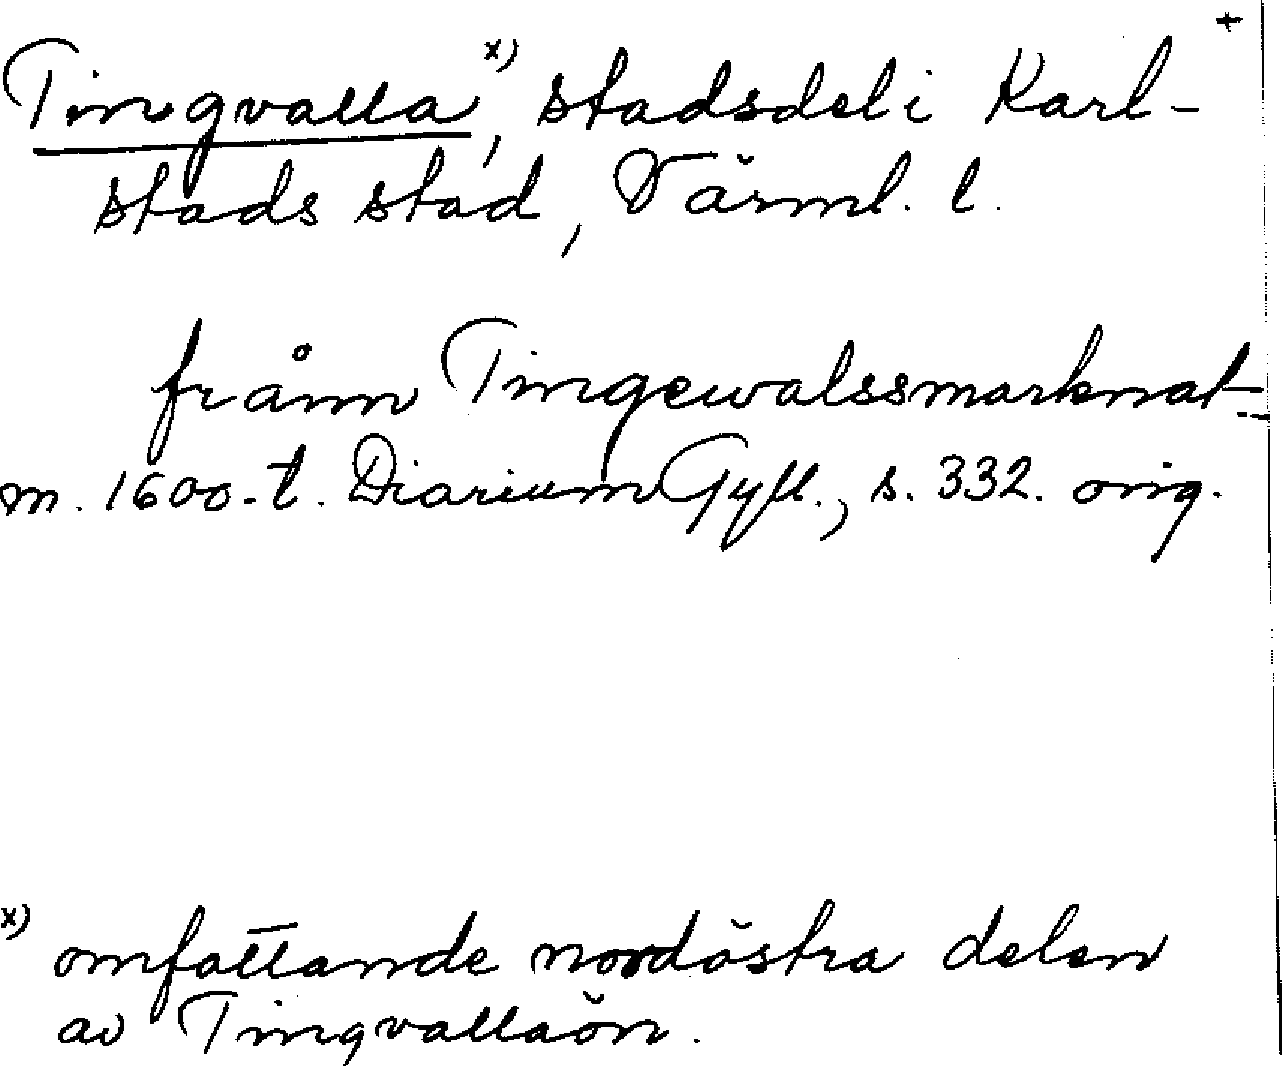 +
Tingvalla x), stadsdel i Karl-
stads stad, Värml. l.
frånn Tingewalssmarknat
m. 1600-t. Diarium Gyll., s. 332. orig.
x) omfattande nordöstra delen
av Tingvallaön.